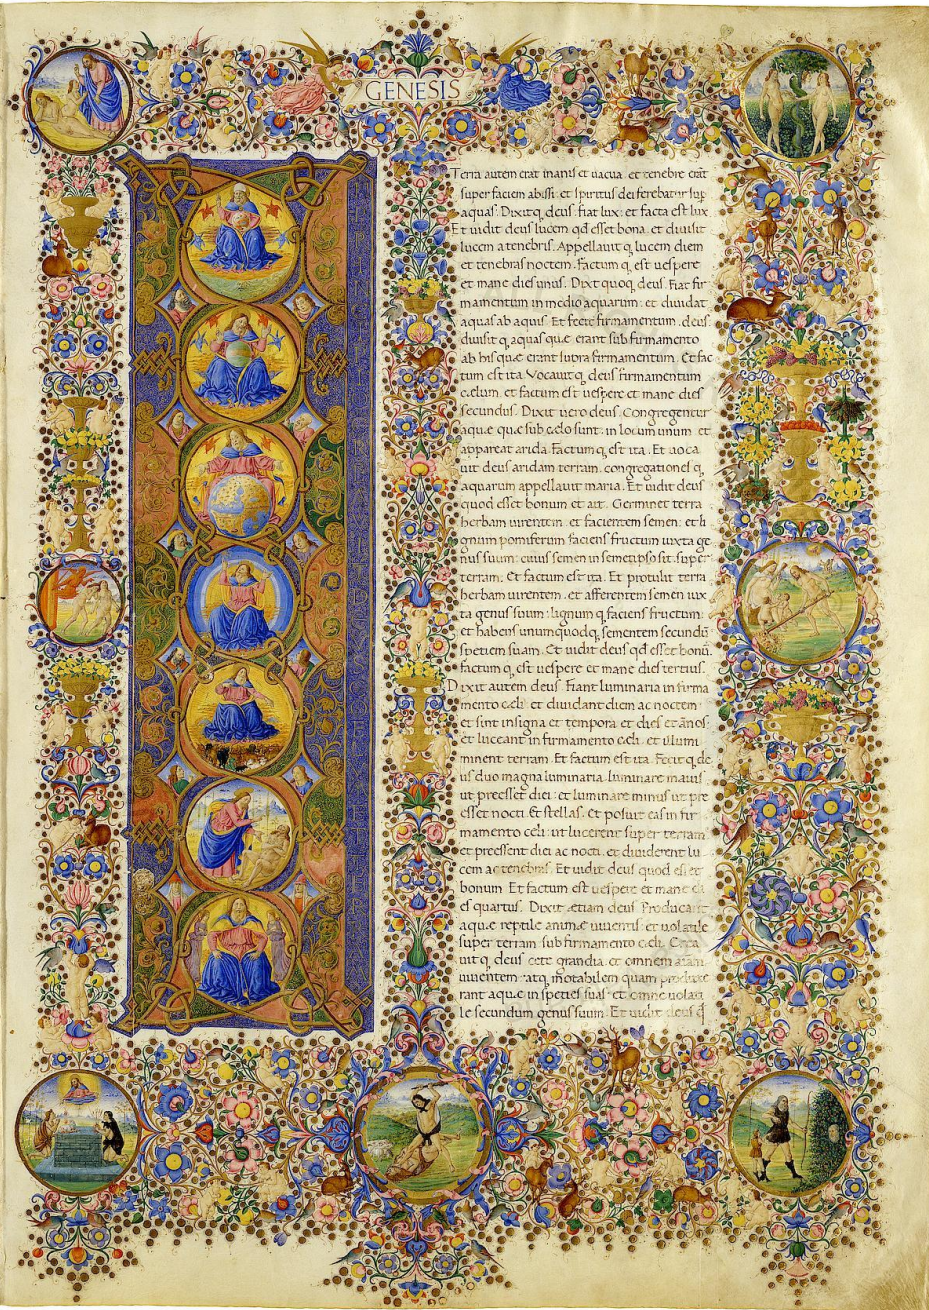 GENESIS
Terra autem erat inanis et uacua. et tenebre erāt
super faciem abissi: et spiritus dei ferebatur sup
aquas. Dixitq, deus. fiat lux: et facta est lux.
Et uidit deus lucem qd esset bona. et diuisit
lucem a tenebris. Appellauit q, lucem diem
et tenebras noctem. Factum q, est uespere
et mane dies unus. Dixit quoq, deus. Fiat fir
mamentum in medio aquarum: et diuidat
aquas ab aquis. Et fecit firmamentum deus:
diuisit q, aquas quę erant sub firmamento
ab his quę erant supra firmamentum. Et fac
tum est ita. Vocauit q, deus firmamentum
cęlum. et factum est uespere et mane dies
secundus. Dixit uero deus. Congregentur
aquę quę sub cęlo sunt: in locum unum et
appareat arida. Factum q, est ita. Et uoca
uit deus aridam terram. congregationes q,
aquarum appellauit maria. Et uidit deus
quod esset bonum et ait. Germinet terra
herbam uirentem. et facientem semen: et li
gnum pomiferum faciens fructum iuxta ge
nus suum: cuius semen in semetipso sit. super
terram. Et factum est ita. Et protulit terra
herbam uirentem. et afferentem semen iux
ta genus suum: lignum q, faciens fructum:
et habens unumquodq, sementem secundū
speciem suam. Et uidit deus qd esset bonū.
factum q, est uespere et mane dies tertius.
Dixit autem deus. Fiant luminaria in firma
mento cęli: et diuidant diem ac noctem:
et sint in signa et tempora et dies et ānos
et luceant in firmamento cęli. et illumi
minent terram. Et factum est ita. Fecit q, de
us duo magna luminaria. luminare maius
ut preesset diei: et luminare minus ut pre
esset nocti & stellas. et posuit eas in fir
mamento cęli: ut lucerent super terram
et preessent diei ac nocti. et diuiderent lu
cem ac tenebras. Et uidit deus quod esset
bonum. Et factum est uespere et mane di
es quartus. Dixit etiam deus. Producant
aquę reptile animę uiuentis: et uolatile
super terram sub firmamento cęli. Crea
uit q, deus cete grandia. et omnem aīam
uiuentem atq, motabilem quam produxe
rant aquę in species suas: et omne uolati
le secundum genus suum. Et uidit deus q